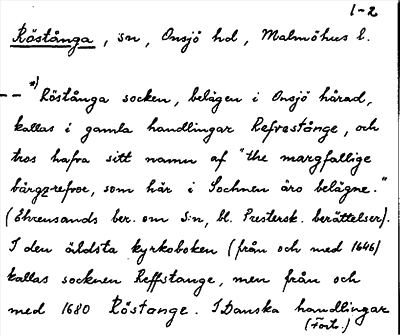 1-2
Röstånga, sn, Onsjö hd, Malmöhus l.
-- *) Röstånga socken, belägen i Onsjö härad,
kallas i gamla handlingar Refrestånge, och
tros hafva sitt namn af "the margfallige
bärgz-refvor, som här i Sochnen äro belägne."
(Ehrensands ber. om s:n, bl. Prestersk. berättelser).
I den äldsta kyrkoboken (från och med 1646)
kallas socknen Reffstange, men från och
med 1680 Röstange. I Danska handlingar
(Forts.)